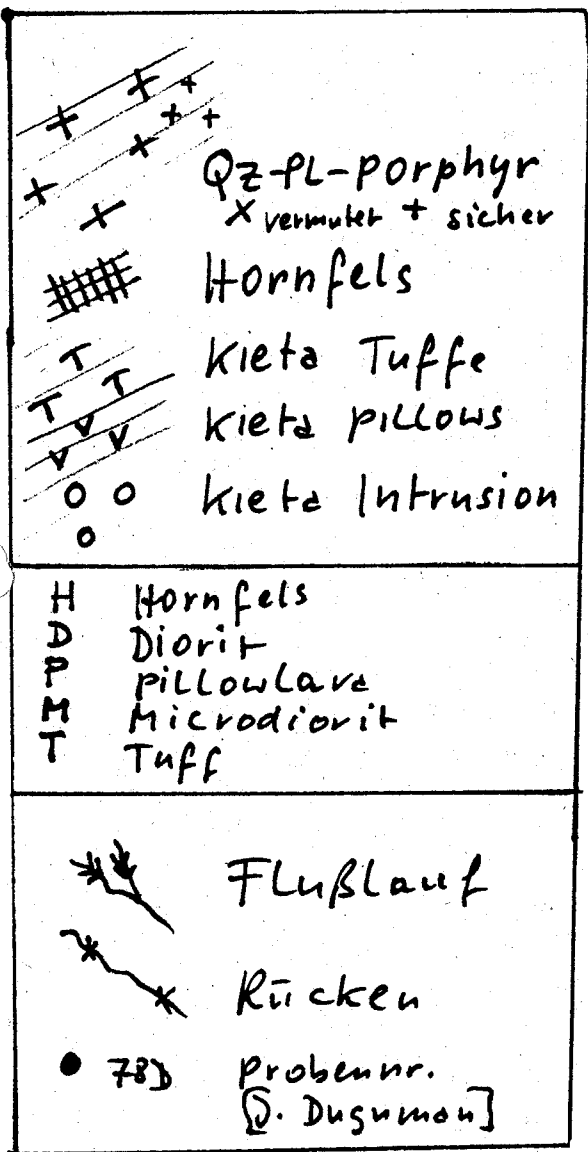 Qz-PL-Porphyr
x vermutet + sicher
Hornfels
Kieta Tuffe
Kieta Pillows
Kieta Intrusion
H Hornfels
D Diorit
P Pillowlava
M Microdiorit
T Tuff
Flußlauf
Rücken
78D Probennr.
Dugumon]